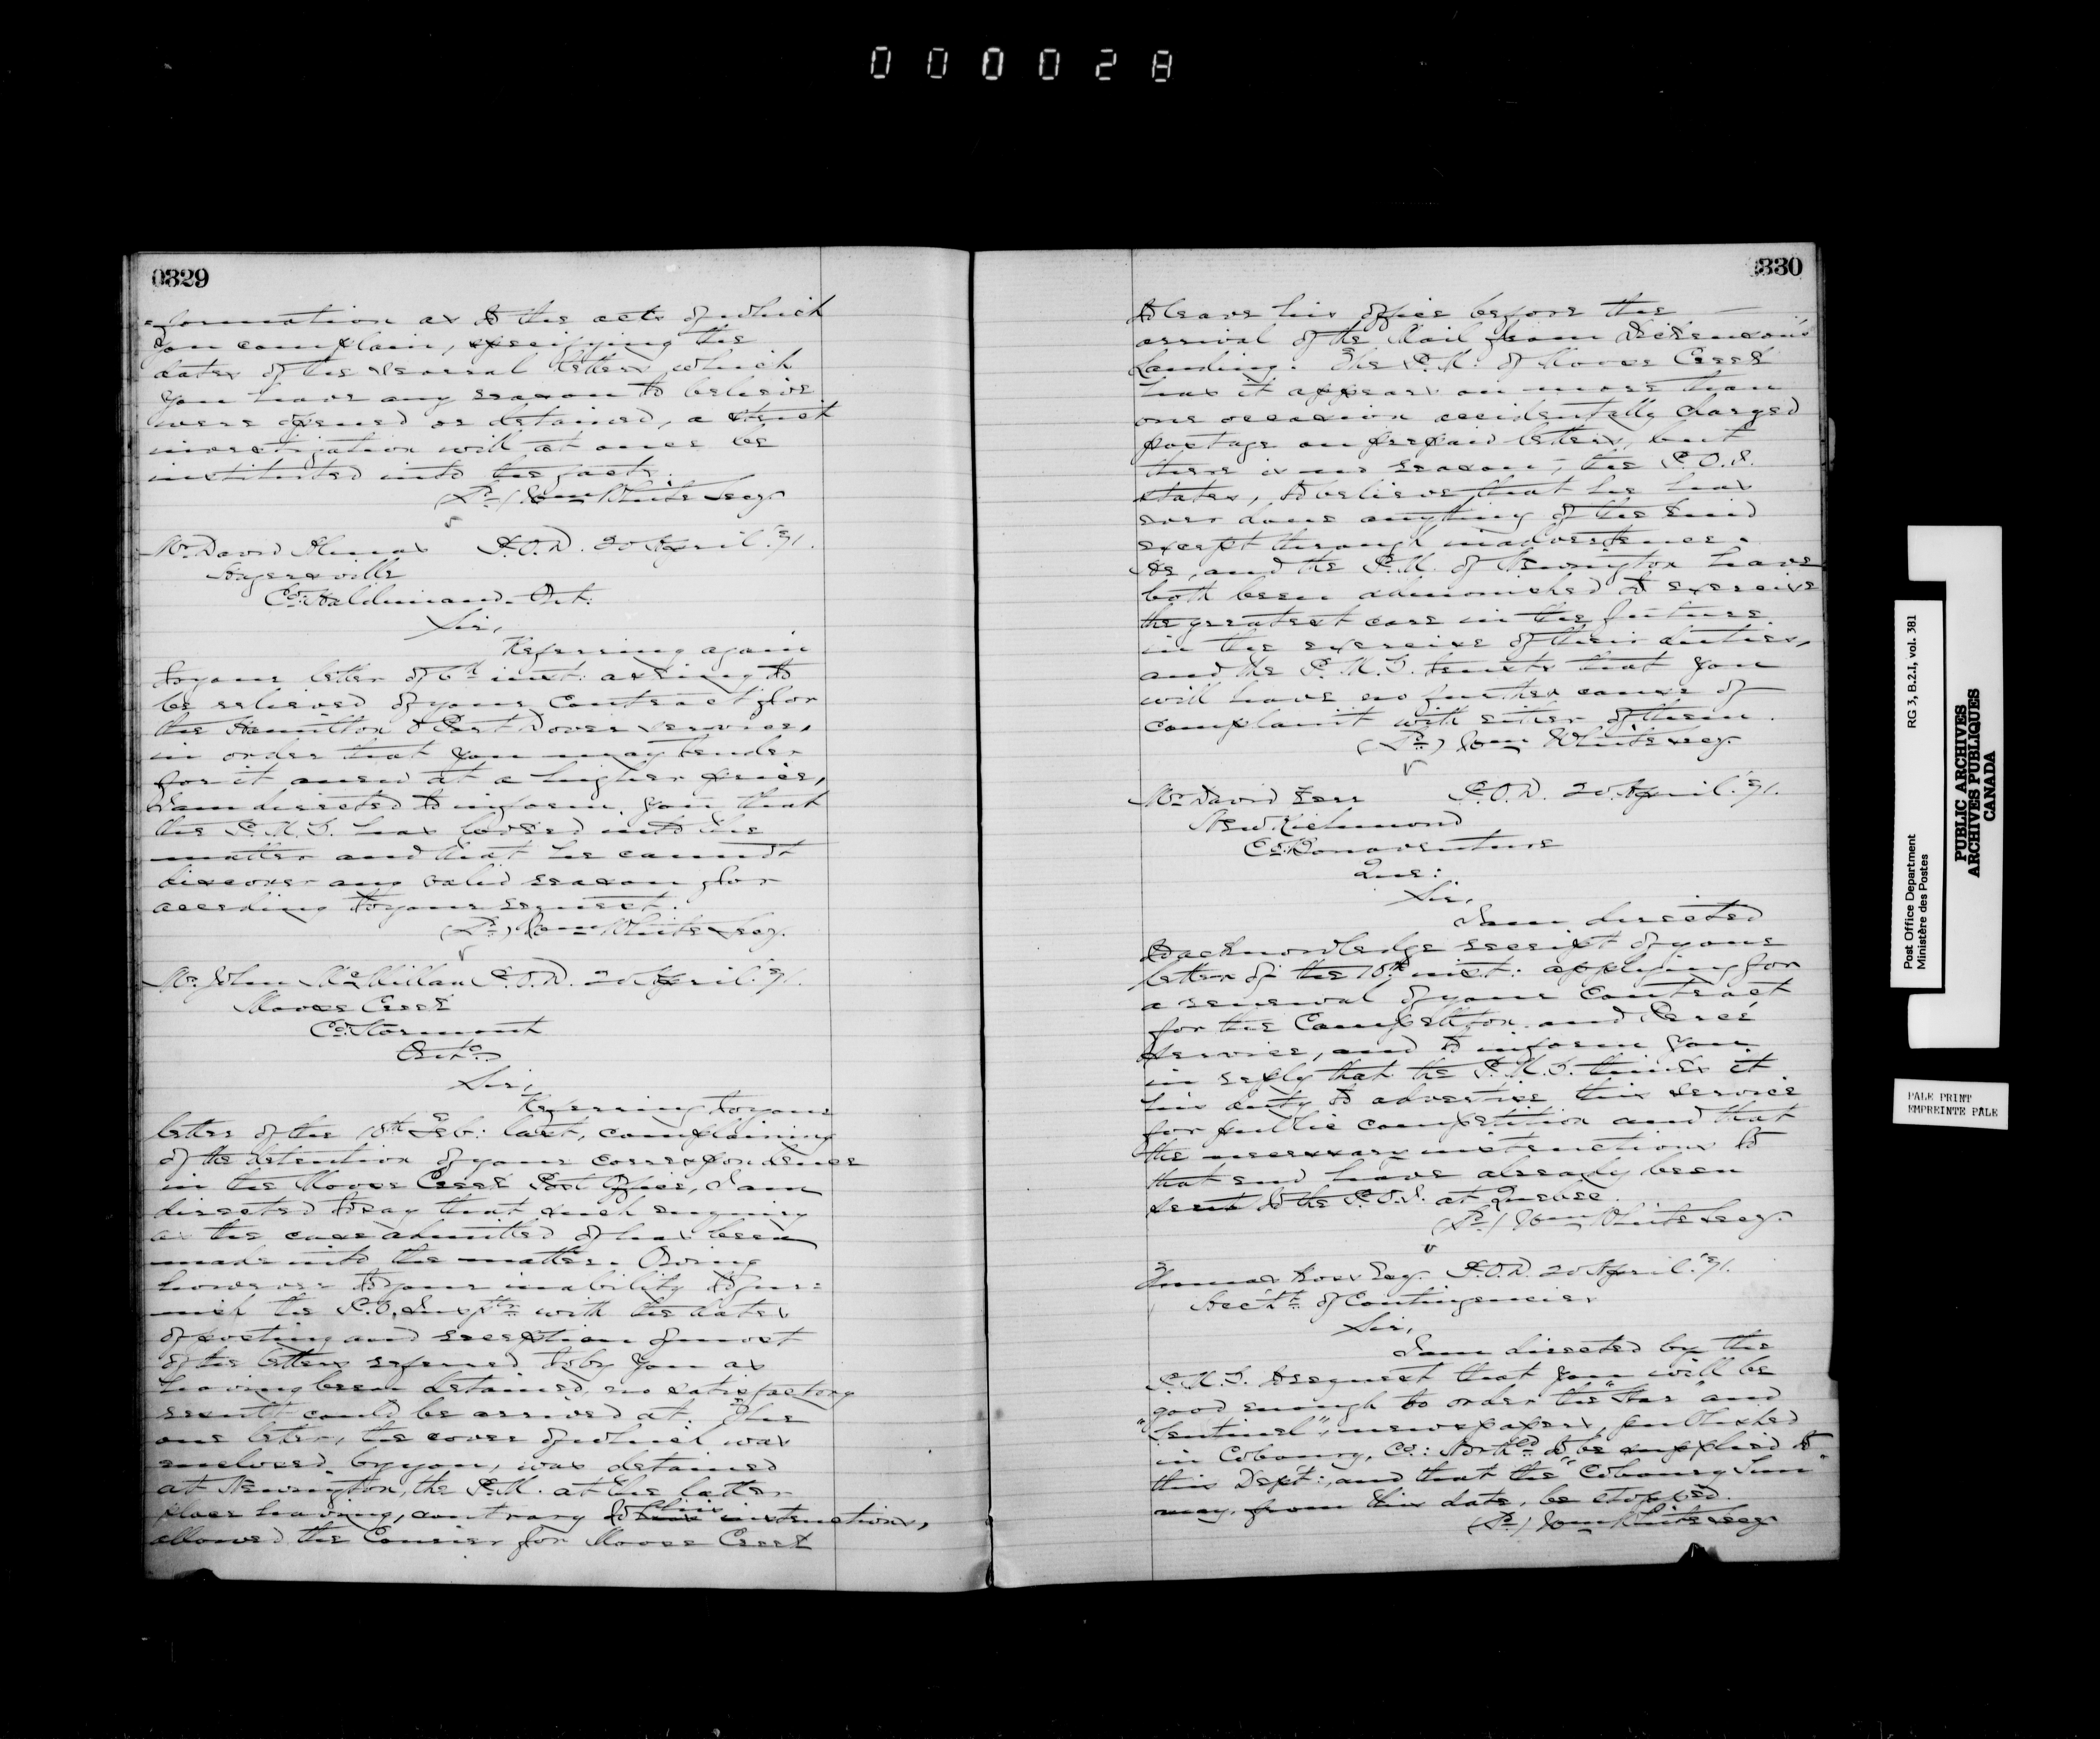 000028
0329
=formation as to the acts of which
you complain, specifying the
dates of the several letters which
you have any reason to believe
were opened or detained, a strict
investigation will at once be
instituted into the facts.
(Sd) Wm White Secy.
Mr David Almas P.O.D. 20 April '91.
Hagersville
Co. Haldimand. Ont:
Sir,
Referring again
to your letter of 6th inst: asking to
be relieved of your Contract for
the Hamilton & Port Dover service,
in order that you may tender
for it anew at a higher price,
I am directed to inform you that
the P.M.G. has looked into the
matter and that he cannot
discover any valid reason for
acceding to your request.
(Sd) Wm White Secy.
Mr John McMillan P.O.D. 20 April '91.
Moose Creek
Co. Stormont
Onto
Sir,
Referring to your
letter of the 18th Feb: last, complaining
of the detention of your correspondence
in the Moose Creek Post Office, I am
directed to say that such enquiry
as the case admitted of has been
made into the matter. Owing
however to your inability to fur=
nish the P.O. Inspctr with the dates
of posting and reception of most
of the letters referred to by you as
having been detained, no satisfactory
result could be arrived at. The
one letter, the cover of which was
enclosed by you, was detained
at Newington, the P.M. at the latter
place having, contrary to his instructions,
allowed the Courier for Moose Creek
330
to leave his office before the
arrival of the Mail from Dickenson's
Landing. The P.M. of Moose Creek
has it appears on more than
one occasion accidentally charged
postage on prepaid letters, but
there is no reason, the P.O.I.
states, to believe that he has
ever done anything of the kind
except through inadvertence.
He, and the P.M. of Newington have
both been admonished to exercise
the greatest care in the future
in the exercise of their duties,
and the P.M.G. trusts that you
will have no further cause of
complaint with either of them.
(Sd) Wm White Secy.
Mr David Kerr P.O.D. 20 April '91.
New Richmond
Co. Bonaventure
Que:
Sir,
I am directed
to acknowledge receipt of your
letter of the 10th inst: applying for
a renewal of your Contract
for the Campbellton and Percé
service, and to inform you
in reply that the P.M.G. thinks it
his duty to advertise this service
for public competition and that
the necessary instructions to
that end have already been
sent to the P.O.I. at Quebec.
(Sd) Wm White Secy.
Thomas Ross Esq. P.O.D. 20 April '91.
Acc'tt of Contingencies
Sir,
I am directed by the
P.M.G. to request that you will be
good enough to order the "Star" and
"Sentinel", newspapers, published
in Cobourg, Co: Northd to be supplied to
this Dept:, and that the "Cobourg Sun"
may, from this date, be stopped.
(Sd) Wm White Secy
Post Office Department RG 3, B.2.I, vol. 381
Ministère des Postes
PUBLIC ARCHIVES
ARCHIVES PUBLIQUES
CANADA
PALE PRINT
EMPREINTE PÂLE